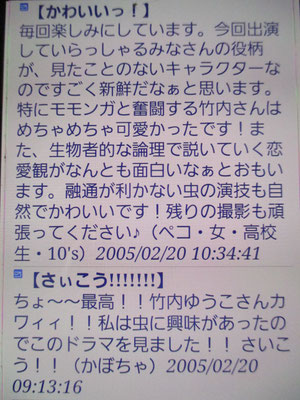 【かわいいっ！】
毎回楽しみにしています。今回出演
していらっしゃるみなさんの役柄
が、見たことのないキャラクターな
のですごく新鮮だなぁと思います。
特にモモンガと奮闘する竹内さんは
めちゃめちゃ可愛かったです！ま
た、生物者的な論理で説いていく恋
愛観がなんとも面白いなぁとおもい
ます。融通が利かない虫の演技も自
然でかわいいです！残りの撮影も頑
張ってください♪（ペコ・女・高校
生・10's）2005/02/20 10:34:41
【さぃこう!!!!!!!】
ちょ～～最高！！竹内ゆうこさんカ
ワィィ！！私は虫に興味があったの
でこのドラマを見ました！！ さいこ
う！！（かぼちゃ）2005/02/20
09:13:16